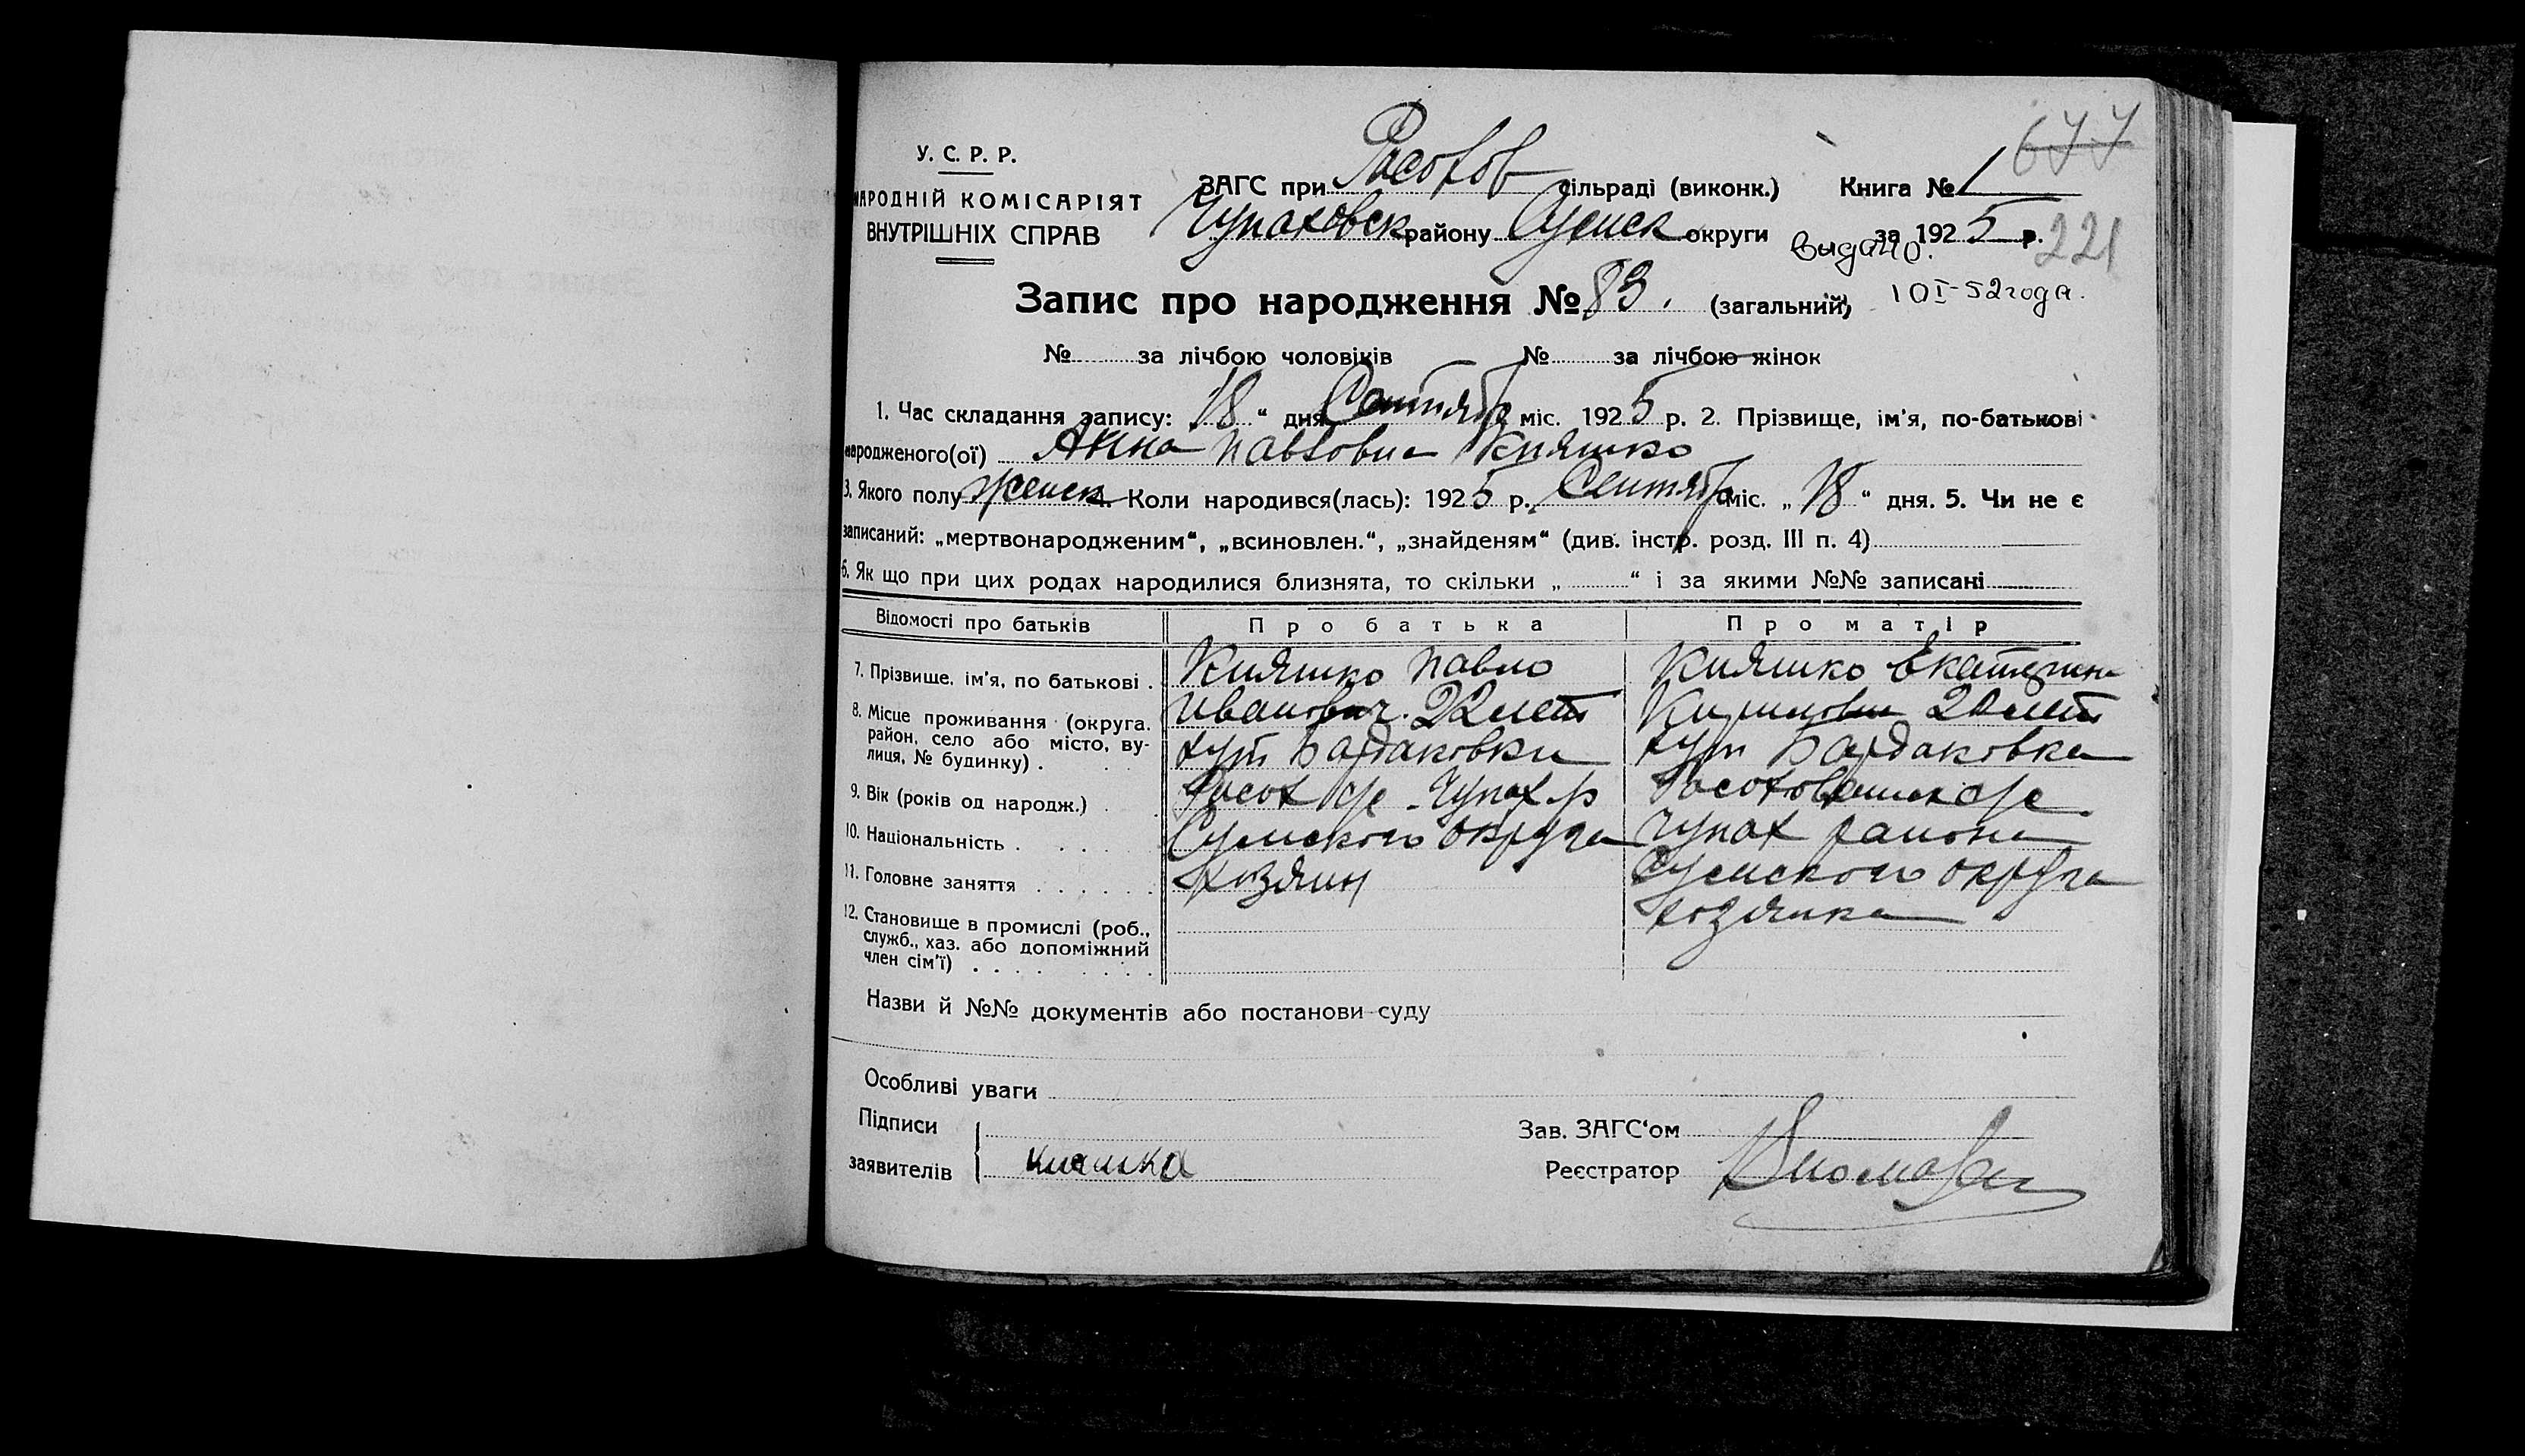 677
У. С. Р. Р.
НАРОДНІЙ КОМІСАРІЯТ
ВНУТРІШНІХ СПРАВ
ЗАГС при Расохов сільраді (виконк.) Книга № 1
Чупаховск району Сумск округи за 1925 р. 221
Выдано.
10 I-52 года.
Запис про народження № 83. (загальний)
№ за лічбою чоловіків № за лічбою жінок
1. Час складання запису: 18 “ дня Сентяб міс. 1925 р. 2. Прізвище, ім'я, по-батькові
народженого(ої) Анна Павловна Княшко
3. Якого полу женск 4. Коли народився(лась): 1925 р. Сентяб міс. „ 18 “ дня. 5. Чи не є
записаний: „мертвонародженим“, „всиновлен.“, „знайденям“ (див. інстр. розд. III п. 4)
6. Як що при цих родах народилися близнята, то скільки „ “ і за якими №№ записані
Відомості про батьків Про батька Про матір
7. Прізвище, ім'я, по батькові . Княшко Павло Княшко Екатерина
8. Місце проживання (округа, район, село або місто, вулиця, № будинку) . Иванович. 22 лет Кириловна 20 лет
хут Бардаковки хут Бардаковка
9. Вік (років од народж.) . Расох с/с Чупах р с/с
10. Національність . Сумского округа Чупах района
11. Головне заняття . хозяин Сумского округа
12. Становище в промислі (роб., служб., хаз. або допоміжний член сім'ї) . хозяйка
Назви й №№ документів або постанови суду
Особливі уваги
Підписи
заявителів Княшка
Зав. ЗАГС‘ом
Реєстратор